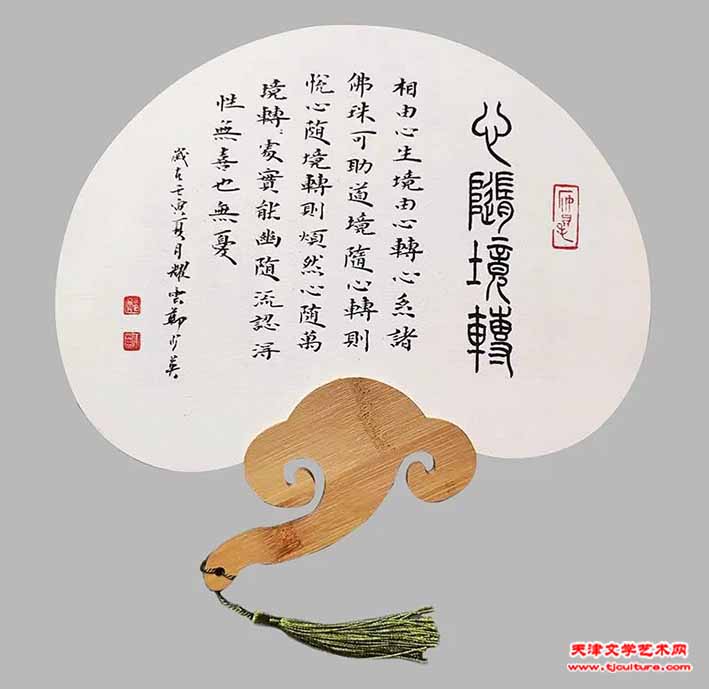 心隨境轉
相由心生境由心轉心系諸
佛珠可助道境隨心轉則
悅心随境轉則煩然心随萬
境轉〻處實能幽随流認淂
性無喜也無憂
歲在壬寅夏月耀雲鄭少英
天津文学艺术网
www.tjculture.com